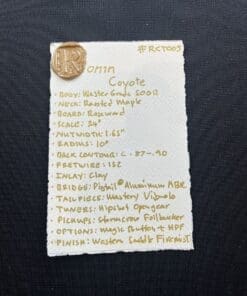 #RCT003
R
Ronin
Coyote
• BODY: Master Grade
• NECK: Roasted Maple
• BOARD: Rosewood
• SCALE: 24"
• NUTWIDTH: 1.65"
• RADIUS: 10"
• BACK CONTOUR: C - .87-.90
• FRETWIRE: 152
• INLAY: Clay
• BRIDGE: Pigtail Aluminum ABR
• TAILPIECE: Mastery Vibrato
• TUNERS: Hipshot Opengear
• PICKUPS: Stormcrow Foilbucker
• OPTIONS: Magic Button + HPF
• FINISH: Western Saddle Firemist